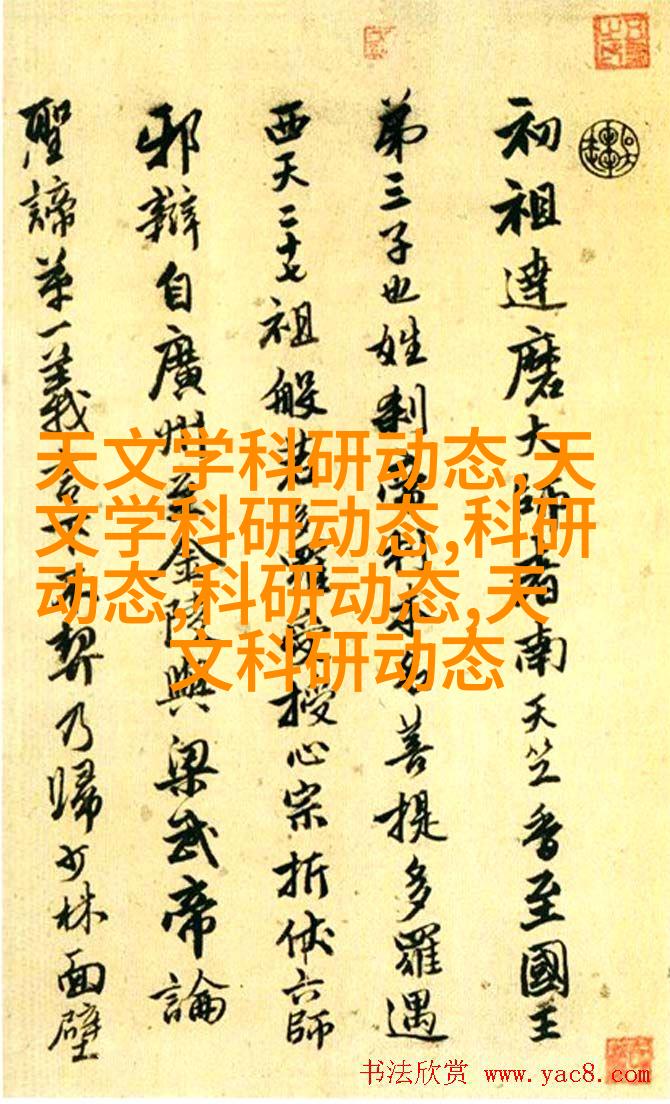 初祖達磨大師者南天竺香至國王
第三子也姓刹帝利本名菩提多羅遇
西天二十七祖般若多羅密授心宗折伏六師
邪辯自廣州至金陵與梁武帝論
聖諦第一義言不契乃歸少林面壁
天文学科研动态,天
文学科研动态,科研
动态,科研动态,天
文科研动态
书法欣赏 www.yac8.com